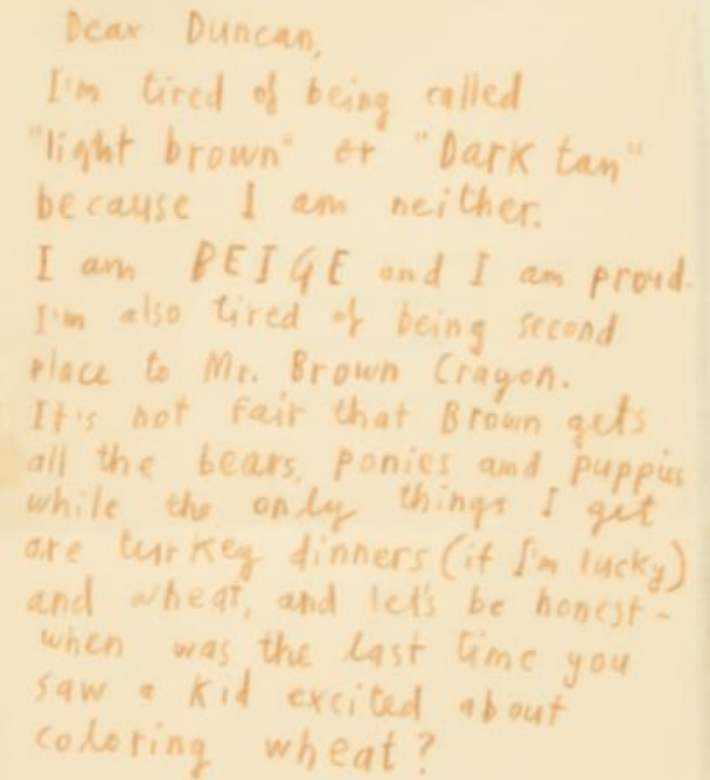 Dear Duncan,
I'm tired of being called
"light brown" or "Dark tan"
because I am neither.
I am BEIGE and I am proud.
I'm also tired of being second
place to Mr. Brown Crayon.
It's not fair that Brown gets
all the bears, ponies and puppies
while the only things I get
are turkey dinners (if I'm lucky)
and wheat, and let's be honest-
when was the last time you
saw a kid excited about
coloring wheat?